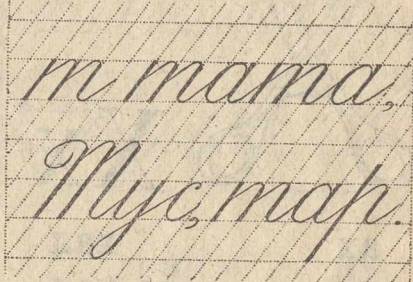 т тата,
Тус, тар.